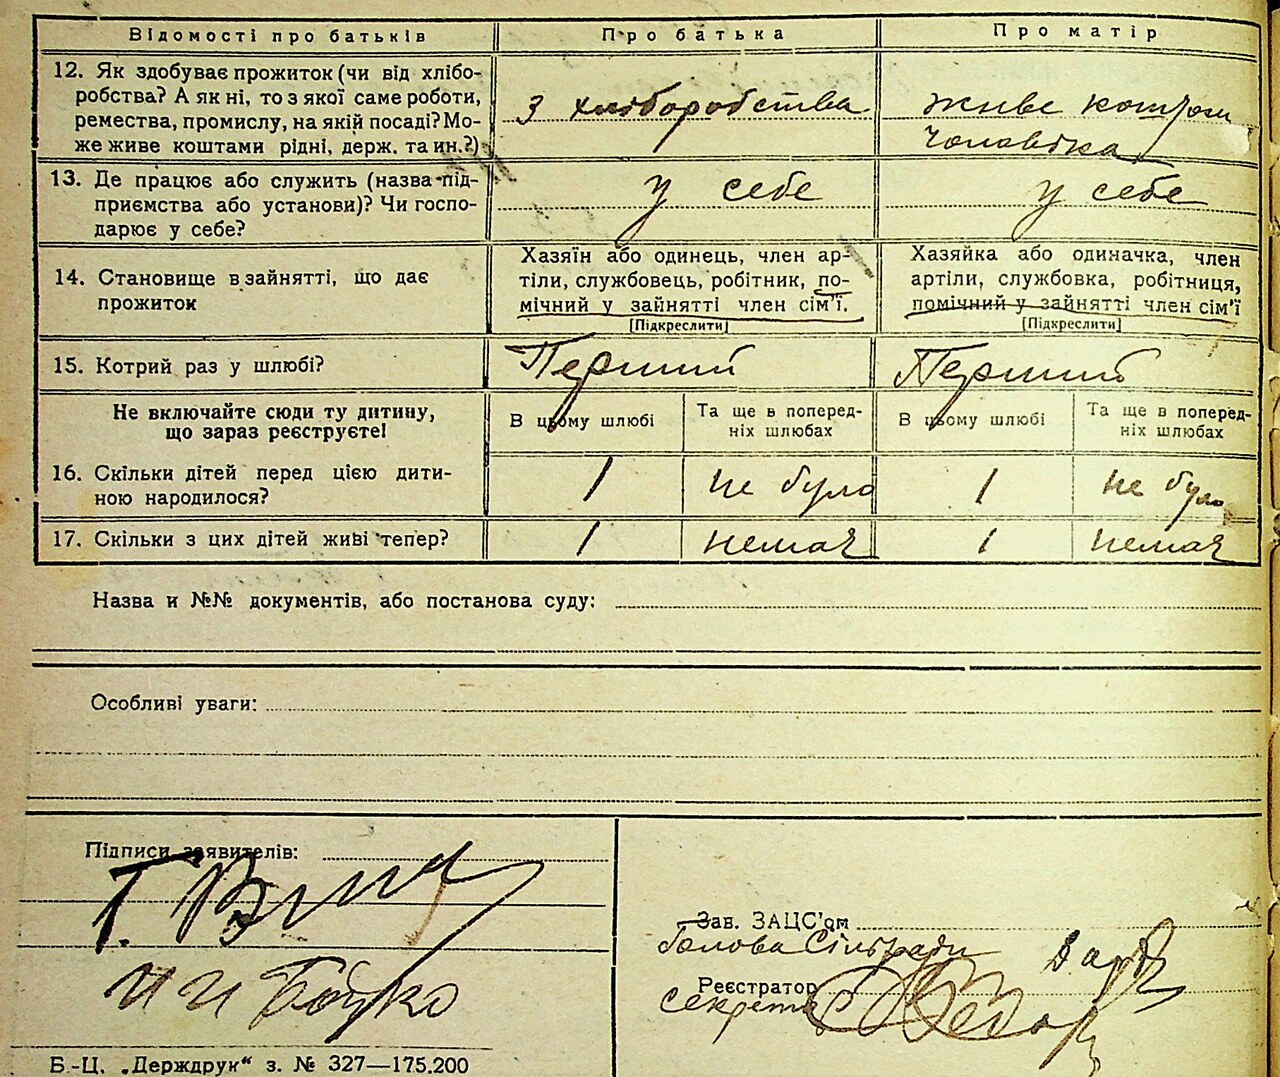 Відомості про батьків
Про батька
Про матір
12. Як здобуває прожиток (чи від хлібо-
робства? А як ні, то з якої саме роботи,
ремества, промислу, на якій посаді? Мо-
же живе коштами рідні, держ. та ин.?)
З хліборобства
живе коштом
чоловіка
13. Де працює або служить (назва під-
приємства або установи)? Чи госпо-
дарює у себе?
у себе
у себе
14. Становище в зайнятті, що дає
прожиток
Хазяїн або одинець, член ар-
тіли, службовець, робітник, по-
мічний у зайнятті член сім'ї.
[Підкреслити]
Хазяйка або одиначка, член
артіли, службовка, робітниця,
помічний у зайнятті член сім'ї
[Підкреслити]
15. Котрий раз у шлюбі?
Перший
Перший
Не включайте сюди ту дитину,
що зараз реєструєте!
В цьому шлюбі
Та ще в поперед-
ніх шлюбах
В цьому шлюбі
Та ще в поперед-
ніх шлюбах
16. Скільки дітей перед цією дити-
ною народилося?
1
не було
1
не було
17. Скільки з цих дітей живі тепер?
1
немає
1
немає
Назва и №№ документів, або постанова суду:
Особливі уваги:
Підписи заявителів:
Бойко
Зав. ЗАЦС'ом
Голова Сільради
Реєстратор
секретар
Б.-Ц. „Держдрук“ з. № 327—175.200